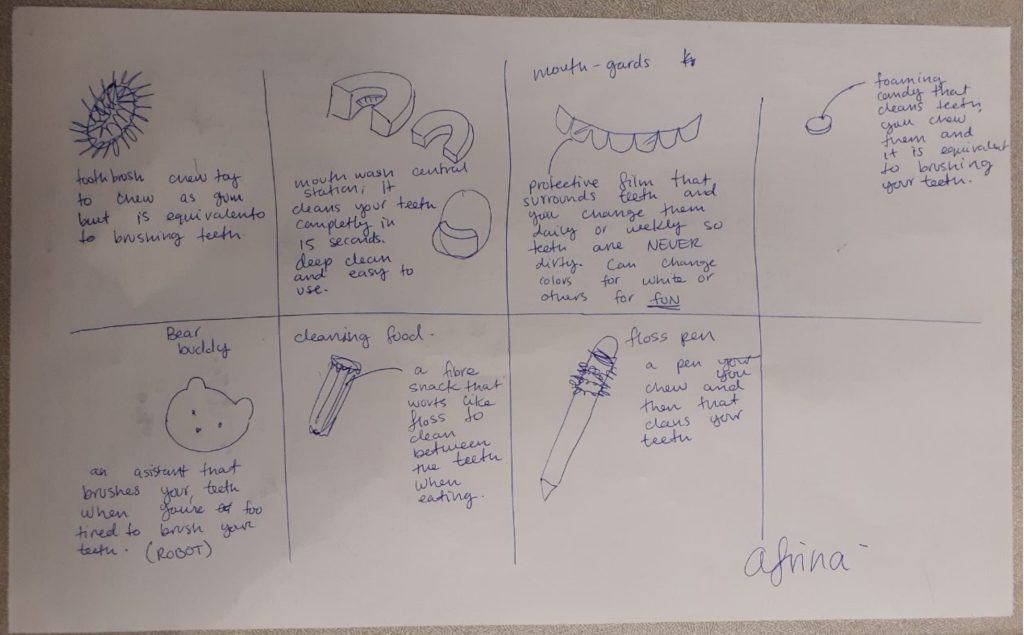 toothbrush chew toy
to chew as gum
but is equivalento
to brushing teeth.
mouth wash central
station, It
cleans your teeth
completly in
15 seconds.
deep clean
and easy to
use.
mouth-gards
protective film that
surrounds teeth and
you change them
daily or wekly so
teeth are NEVER
dirty. Can change
colors for white or
others for fun
foaming
candy that
cleans teeth,
you chew
them and
it is equivalent
to brushing
your teeth.
Bear
buddy
an asistant that
brushes your teeth
when you're too
tired to brush your
teeth. (ROBOT)
cleaning food.
a fibre
snack that
works like
floss to
clean
between
the teeth
when
eating.
floss pen
a pen
you
chew and
then that
cleans your
teeth
afrina